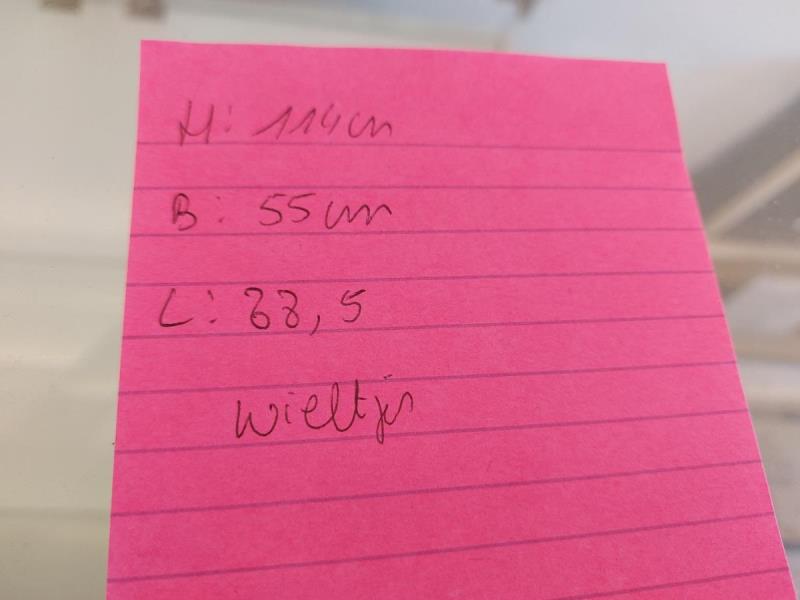 H: 114cm
B: 55cm
L: 88,5
wieltjes